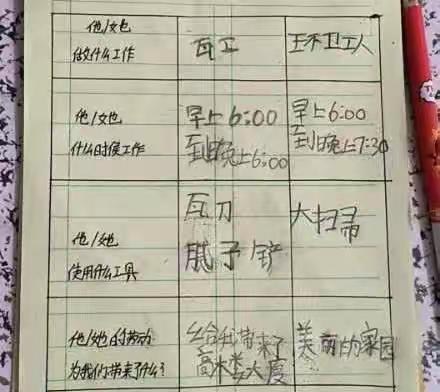 他/她
做什么工作
瓦工
环卫工人
他/她
什么时候工作
早上6:00
到晚上6:00
早上6:00
到晚上7:30
他/她
使用什么工具
瓦刀
腻子铲
大扫帚
他/她的劳动
为我们带来了什么?
给我带来了
高木娄大厦
美丽的家园